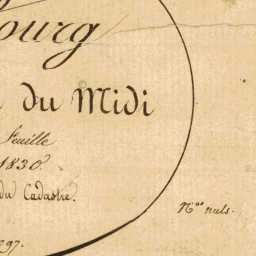 ourg
du Midi
Feuille
1830.
du Cadastre.
Nos nuls.
297.